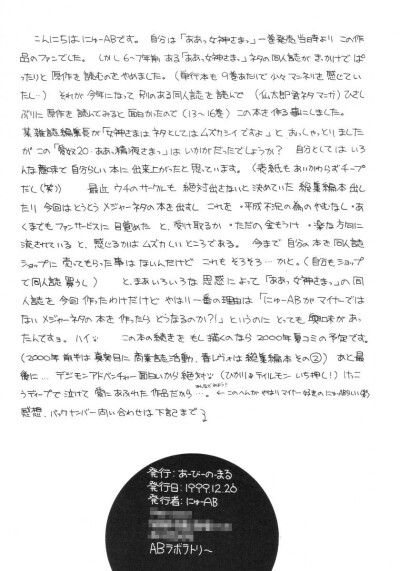 こんにちは にゅーABです。 自分は「ああっ女神さまっ」一巻発売当時より この作
品のファンでした。 しかし 6～7年前、ある「ああっ女神さまっ」ネタの同人誌が きっかけで ぱ
ったりと 原作を読むのを やめました。(単行本も 9巻あたりで 少々マンネリを 感じてい
たし…) それが 今年になって 別のある同人誌を読んで ひさし
ぶりに 原作を 読んでみると 面白かったので (13～16巻) この本を作る事にしました。
某雑誌編集長が「女神さまは ネタとしては ムズカシイですよ」と おっしゃとりました
が この は いかがだったでしょうか? 自分としては いろ
んな意味で 自分らしい本に 出来上がったと 思っています。(表紙も あいかわらず チープ
だし(笑)) 最近 ウチのサークルも 絶対出さないと 決めていた 総集編本 出し
たり 今回は とうとう メジャーネタの本を出すし これを ・平成不況の為の やむなし・あ
くまでも ファンサービスに 目覚めた と、受け取るか ・ただの金もうけ ・楽な方向に
流されている と、感じるかは ムズカしい ところである。 今まで 自分の本を 同人誌
ショップに 売ってもらった事は ないんだけど これも そろそろ…かと。(自分もショップ
で同人誌 買うし) と、まあ いろいろな 思惑 によって「ああっ女神さまっ」の同
人誌を 今回 作ったわけだけど やはり 一番の理由は「にゅーABが マイナーでは
ない メジャーネタの本を 作ったら どうなるのか?!」というのに とっても 興味があっ
たんですョ。 ハイ この本の続きを もし 描くのなら 2000年夏コミの予定です。
(2000年 前半は 真面目に 商業誌活動、春レヴォは 総集編本 その②) あと 最
後に… デジモンアドベンチャー 面白いから 絶対 (ひかり&テイルモン いち押し!) けっこ
うディープで 泣けて 愛にあふれた 作品だから…。 ←このへんが やはり マイナー好きの にゅーABらしい
感想、バックナンバー問い合わせは 下記まで
発行：あーびーの・まる
発行日：1999.12.26
発行者：にゅーAB
ABラボラトリ～